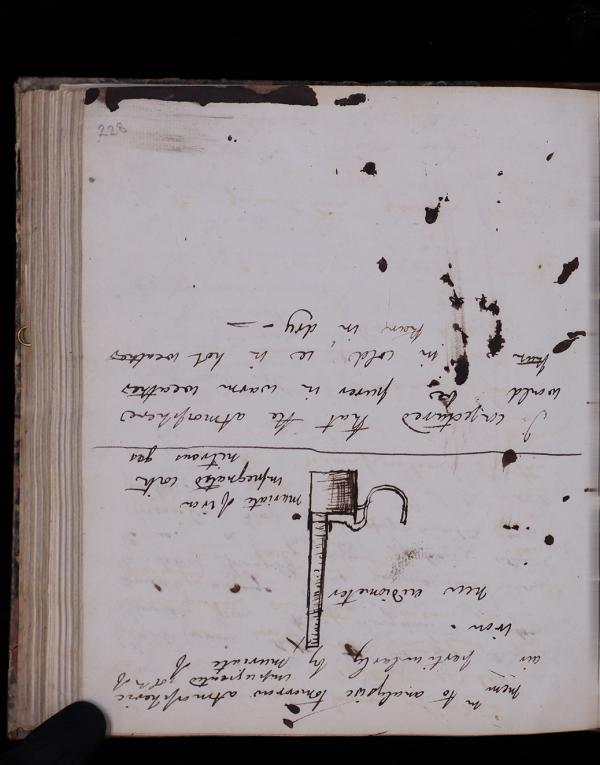 Mem to analyse tomorrow atmospheric
impregnated
air particularly by muriate of
iron.
new eudiometer
muriate of iron
impregnated with
nitrous gas
I conjectured that the atmosphere
would be purer in warm weather
than in cold, ie in hot weather
than in dry —
228